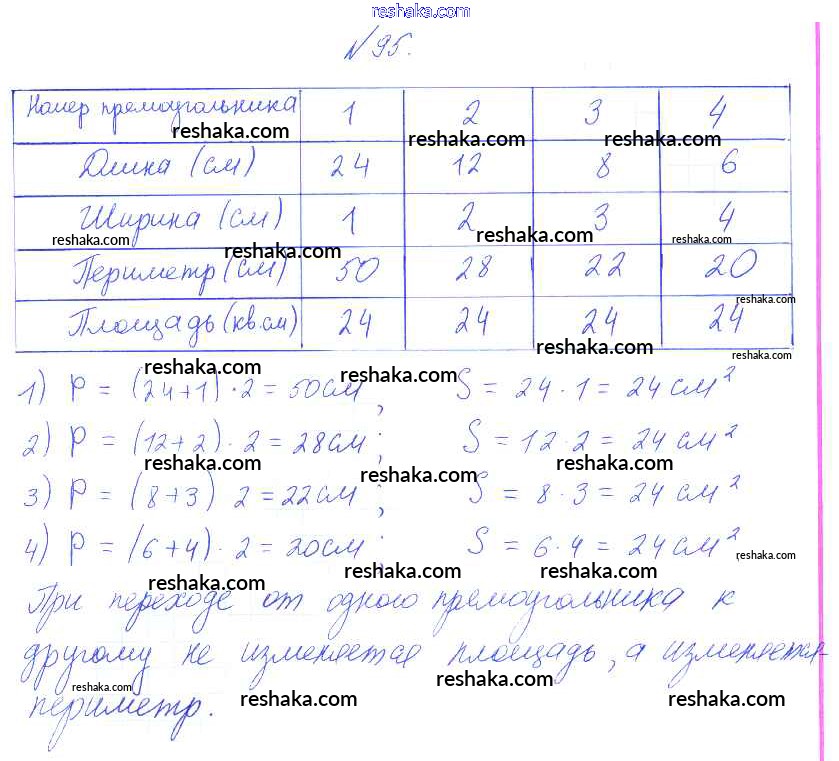 reshaka.com
№95.
Номер прямоугольника 1 2 3 4
reshaka.com reshaka.com reshaka.com
Длина (см) 24 12 8 6
Ширина (см) 1 2 3 4
reshaka.com reshaka.com reshaka.com reshaka.com
Периметр (см) 50 28 22 20
reshaka.com
Площадь (кв.см) 24 24 24 24
reshaka.com reshaka.com
reshaka.com reshaka.com
1) P = (24+1) · 2 = 50см, S = 24 · 1 = 24 см²
2) P = (12+2) · 2 = 28см; S = 12 · 2 = 24 см²
reshaka.com reshaka.com reshaka.com
3) P = (8+3) 2 = 22см; S = 8 · 3 = 24 см²
4) P = (6+4) · 2 = 20см; S = 6 · 4 = 24 см²
reshaka.com
reshaka.com reshaka.com reshaka.com
При переходе от одного прямоугольника к
другому не изменяется площадь, а изменяется
reshaka.com reshaka.com reshaka.com reshaka.com
периметр.